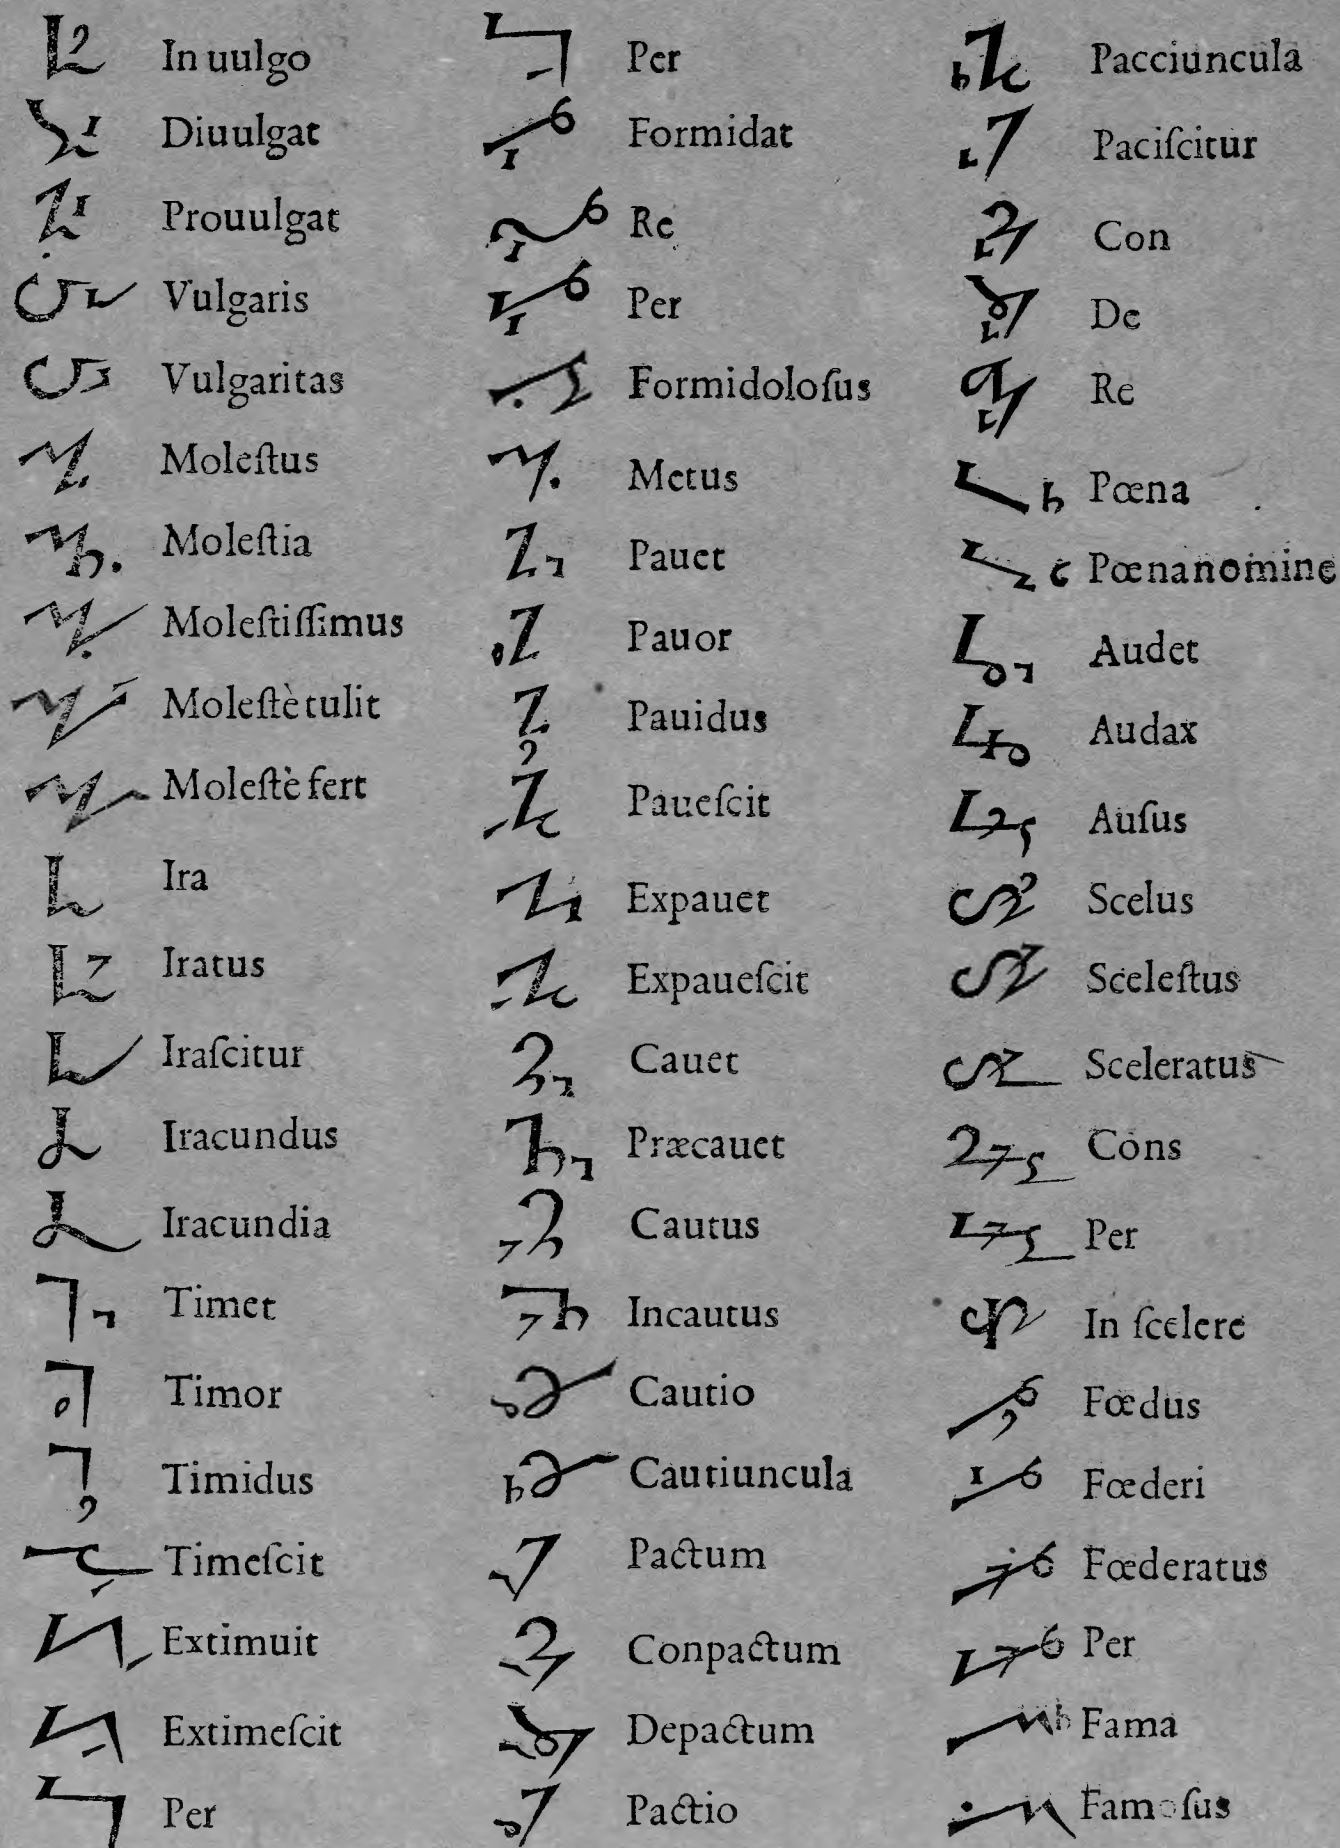 In uulgo
Diuulgat
Prouulgat
Vulgaris
Vulgaritas
Moleſtus
Moleſtia
Moleſtiſſimus
Moleſtètulit
Moleſtè fert
Ira
Iratus
Iraſcitur
Iracundus
Iracundia
Timet
Timor
Timidus
Timeſcit
Extimuit
Extimeſcit
Per
Per
Formidat
Re
Per
Formidoloſus
Metus
Pauet
Pauor
Pauidus
Paueſcit
Expauet
Expaueſcit
Cauet
Præcauet
Cautus
Incautus
Cautio
Cautiuncula
Pactum
Conpactum
Depactum
Pactio
Pacciuncula
Paciſcitur
Con
De
Re
Pœna
Pœnanomine
Audet
Audax
Auſus
Scelus
Sceleſtus
Sceleratus
Cons
Per
In ſcelere
Fœdus
Fœderi
Fœderatus
Per
Fama
Famoſus